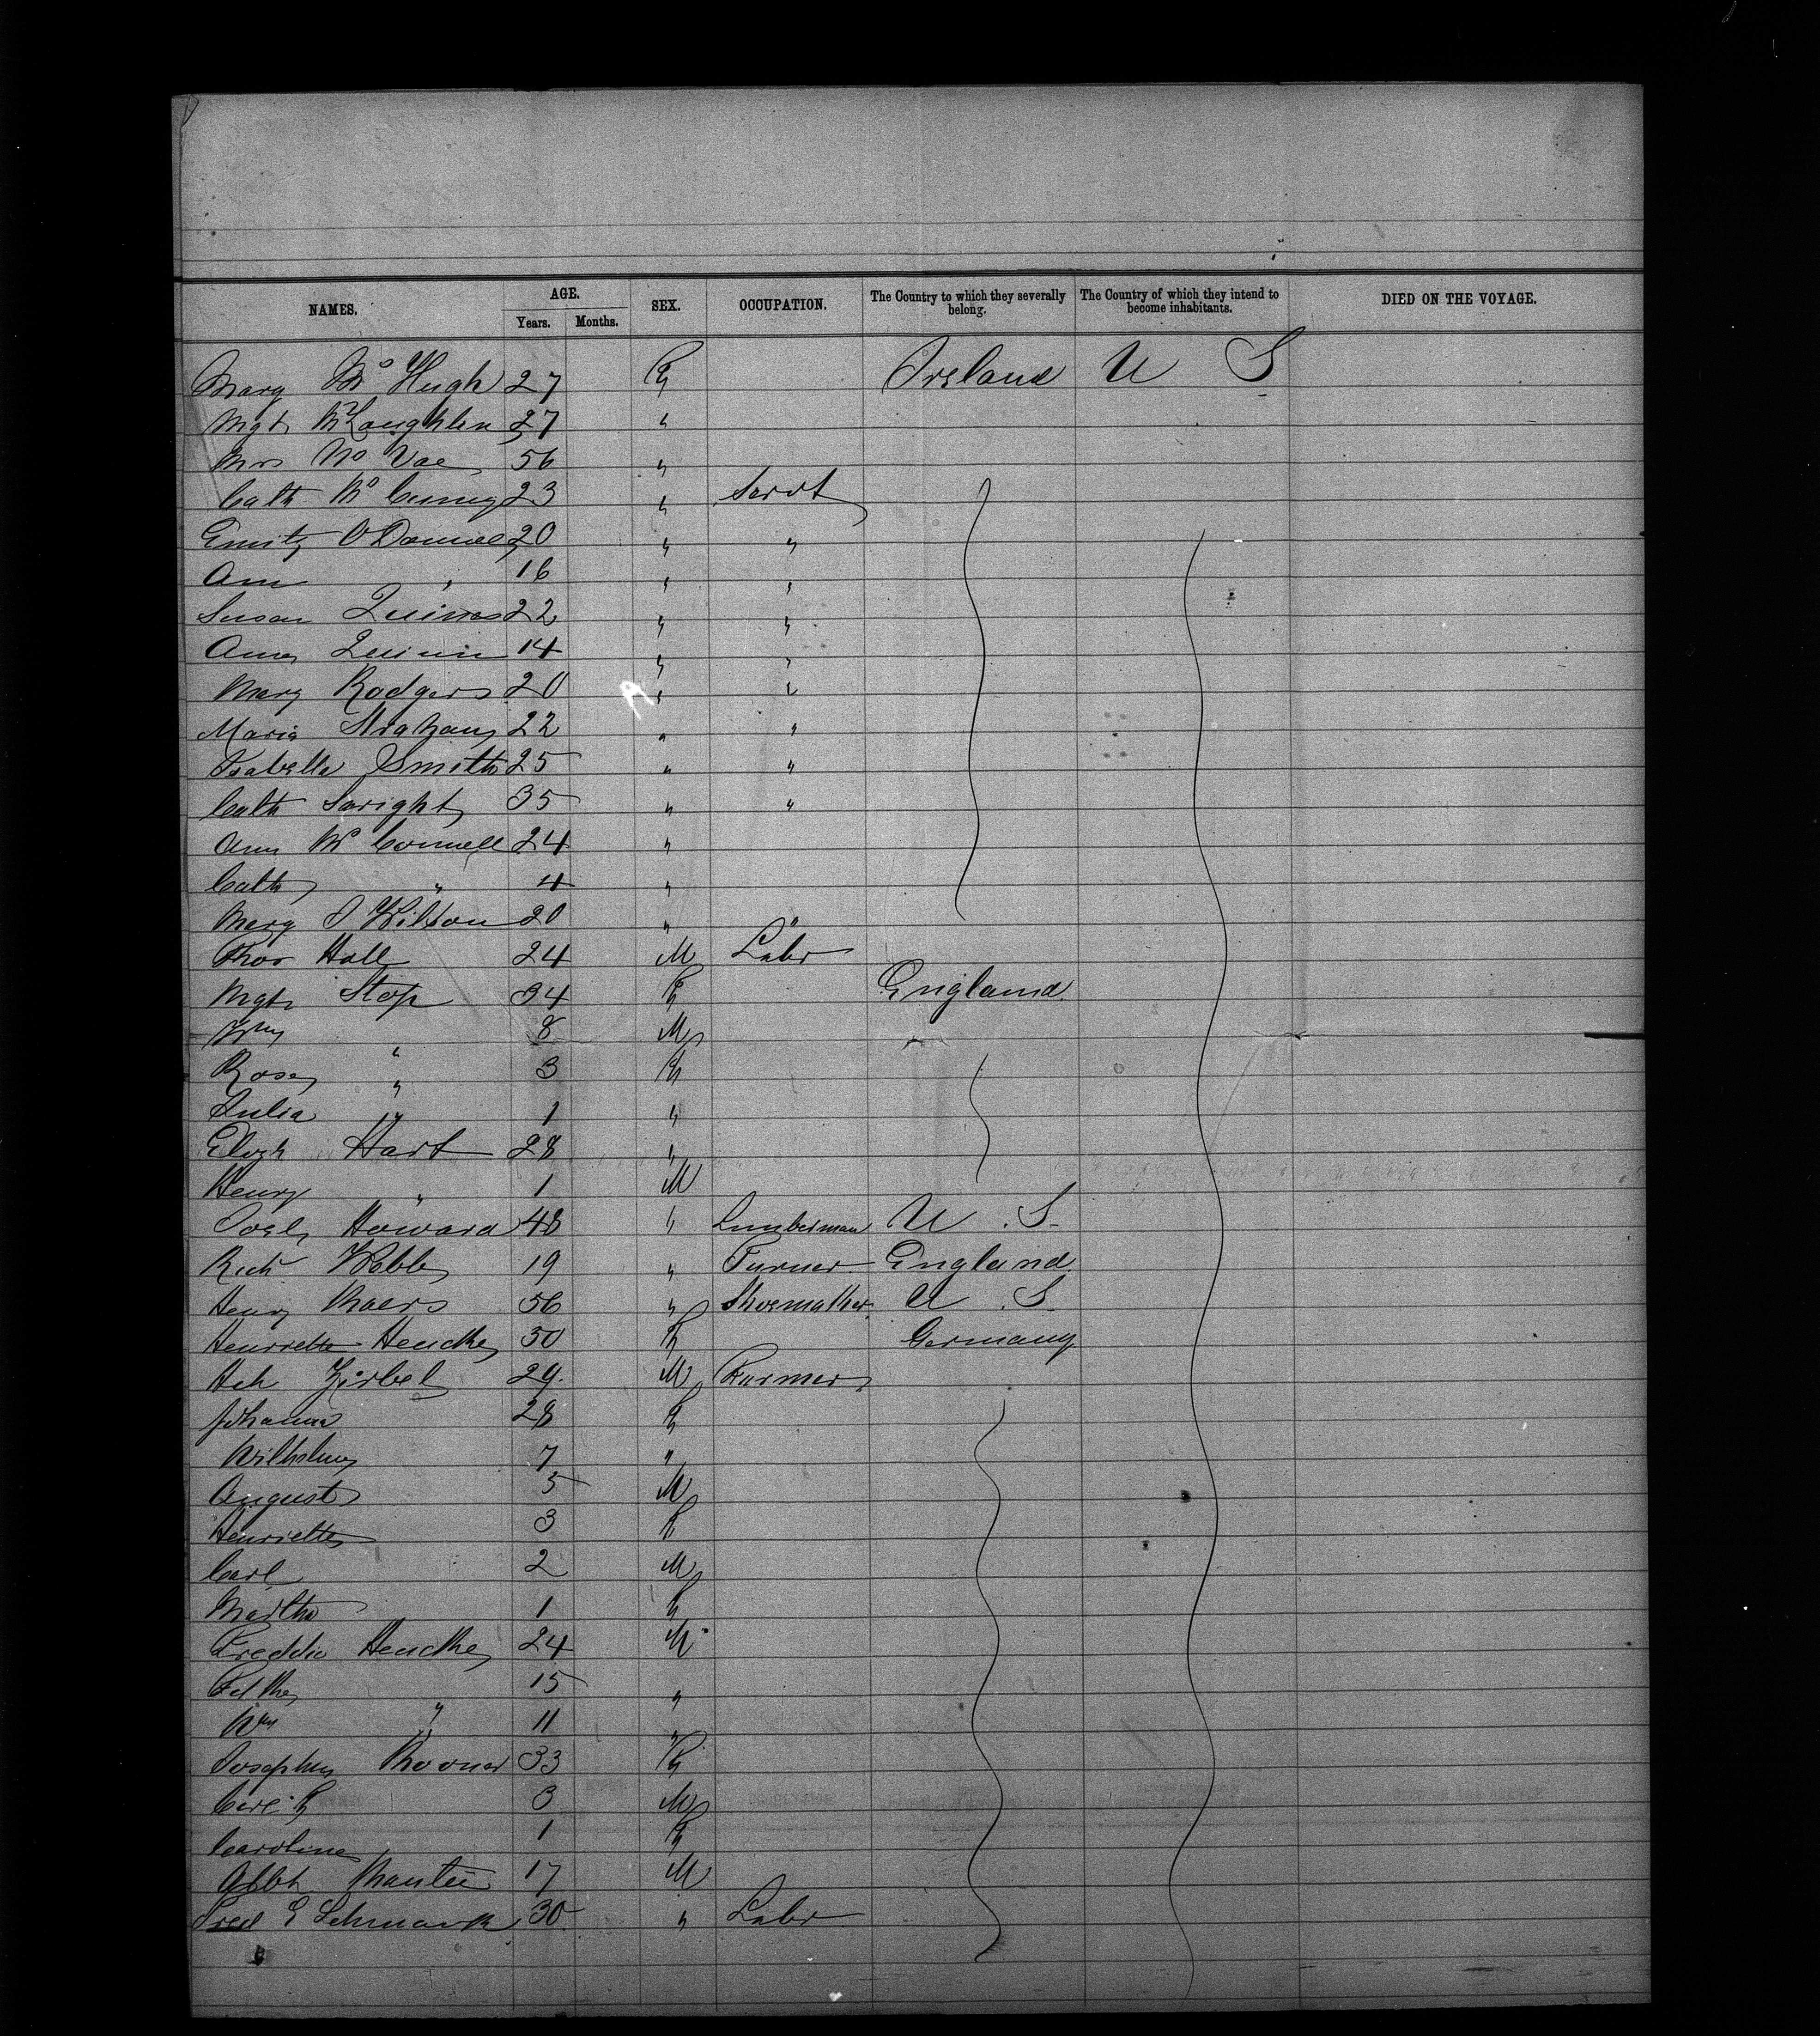 NAMES. AGE. SEX. OCCUPATION. The Country to which they severally belong. The Country of which they intend to become inhabitants. DIED ON THE VOYAGE.
Years. Months.
Mary Mc Hugh 27 F Ireland U S
Mgt McLaughlin 27 "
Mrs Mc Vae 56 "
Cath Mc 23 " Servt
Emily O'Donnell 20 " "
Ann " 16 " "
Susan Quinn 22 " "
Ann Quinn 14 " "
Mary Rodgers 20 " "
Maria Strahan 22 " "
Isabella Smith 25 " "
Cath 35 " "
Ann Mc Connell 24 "
Cath " 4 "
Mary 20 " "
Thos Hall 24 M Labr
Mgt Stop 34 F England
Wm " 8 M
Rose " 3 F
Julia " 1 "
Elizh Hart 28 "
Henry " 1 M
Joel Howard 48 " Lumberman U. S.
Rich Webb 19 " Turner England
Henry 56 " Shoemaker U. S.
Henriette Hencke 50 F Germany
Hch Zirbel 29. M Farmer
Johanna 28 F
Wilhelm 7 "
August 5 M
Henriette 3 F
Carl 2 M
Martha 1 F
Freddie Hencke 24 M
15 "
Wm " 11 "
Josephine 33 F
Carl F 3 M
Caroline 1 F
Manteu 17 M
Fred E Schmark 30 " Labr